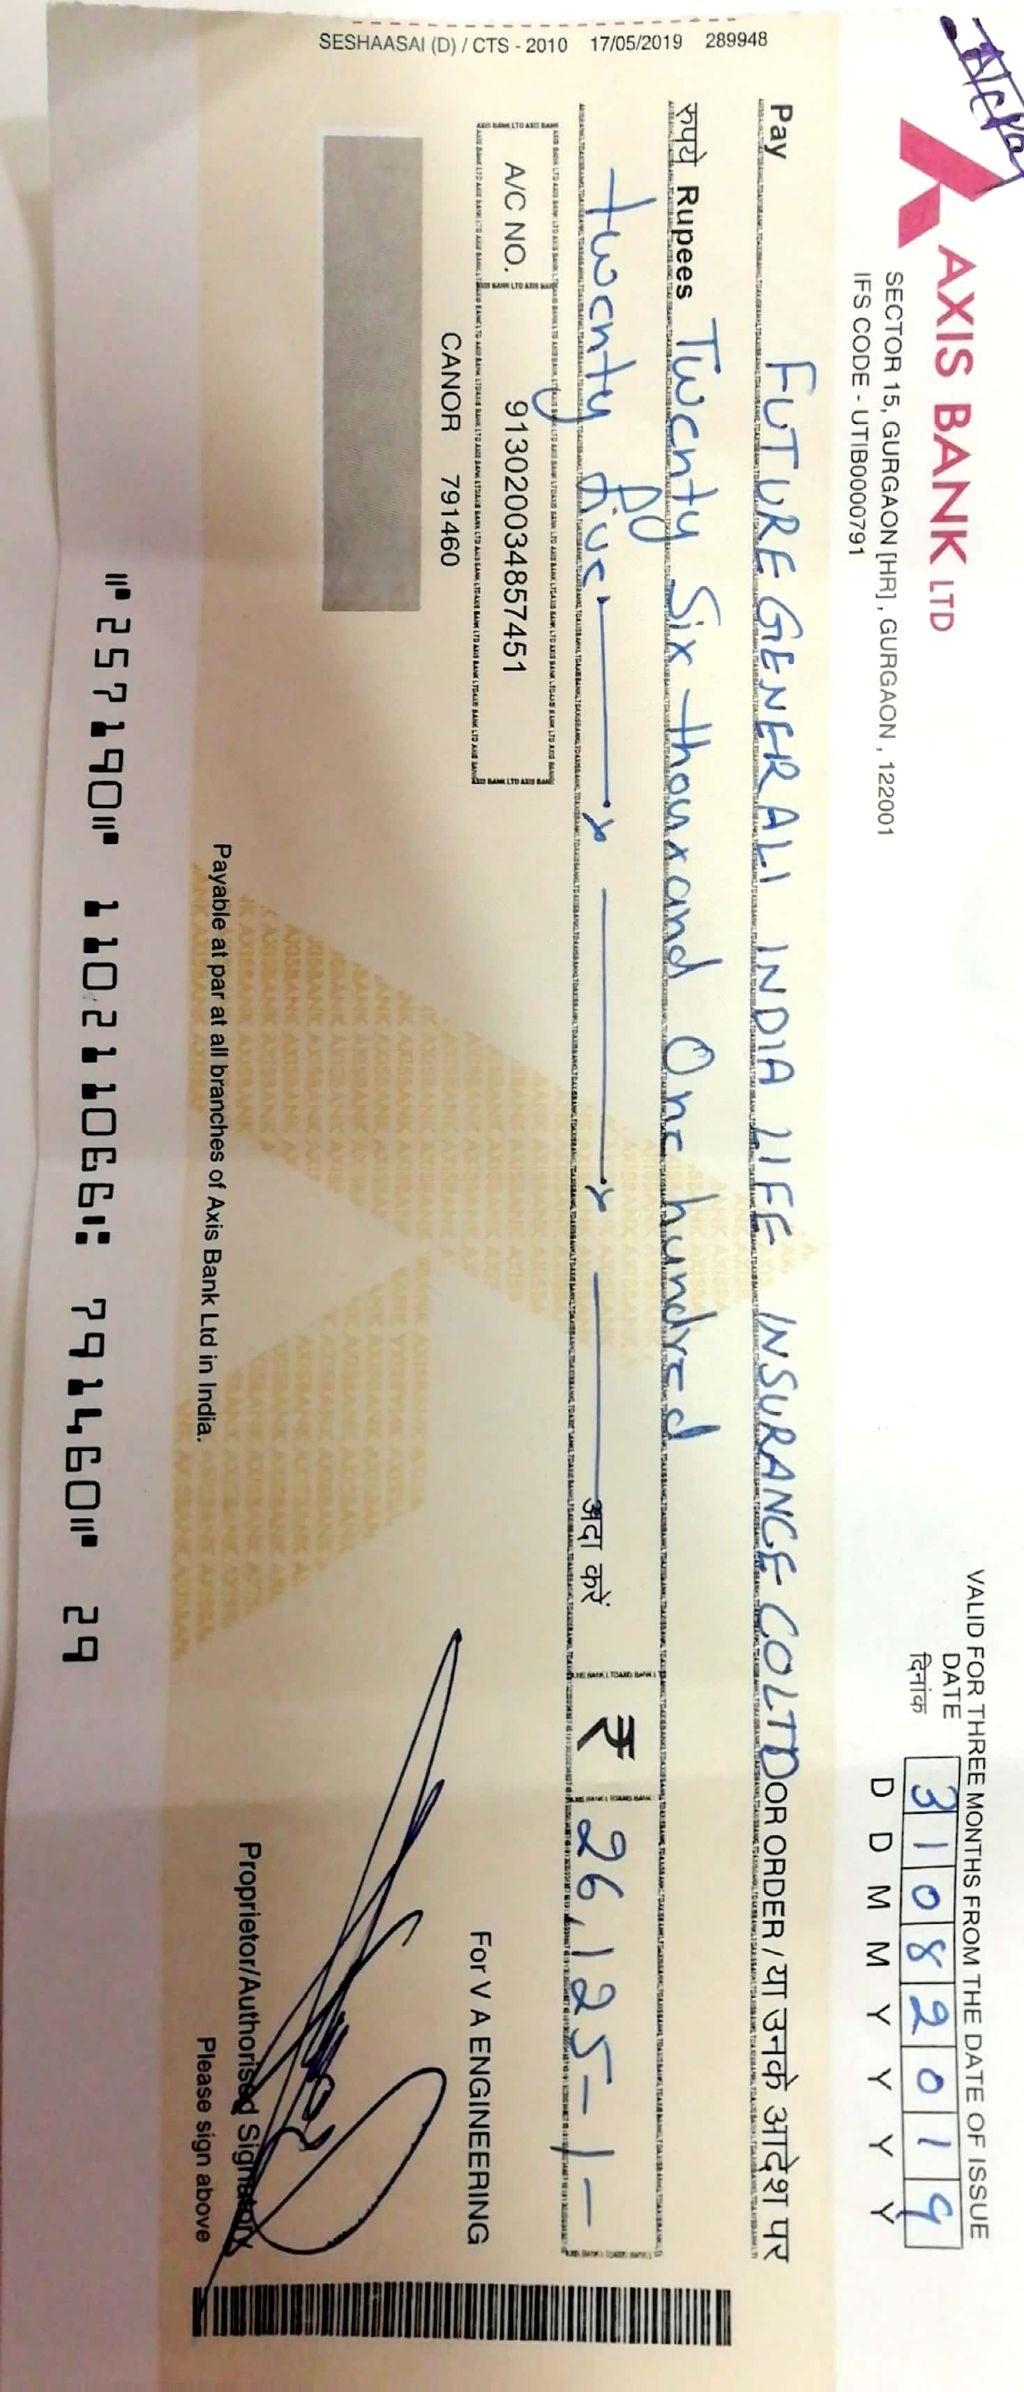 AXIS BANK LTD
SECTOR 15, GURGAON [HR], GURGAON, 122001
IFS CODE - UTIB0000791
VALID FOR THREE MONTHS FROM THE DATE OF ISSUE
DATE
दिनांक 31082019
D D M M Y Y Y Y
Pay FUTURE GENERALI INDIA LIFE INSURANCE CO LTD OR ORDER / या उनके आदेश पर
रुपये Rupees Twenty Six thousand One hundred
twenty five अदा करें ₹ 26,125-/-
A/C NO. 913020034857451
CANOR 791460
For V A ENGINEERING
Proprietor/Authorised Signatory
Please sign above
Payable at par at all branches of Axis Bank Ltd in India.
SESHAASAI (D) / CTS - 2010 17/05/2019 289948
⑈257190⑈ 110211066⑆ 791460⑈ 29